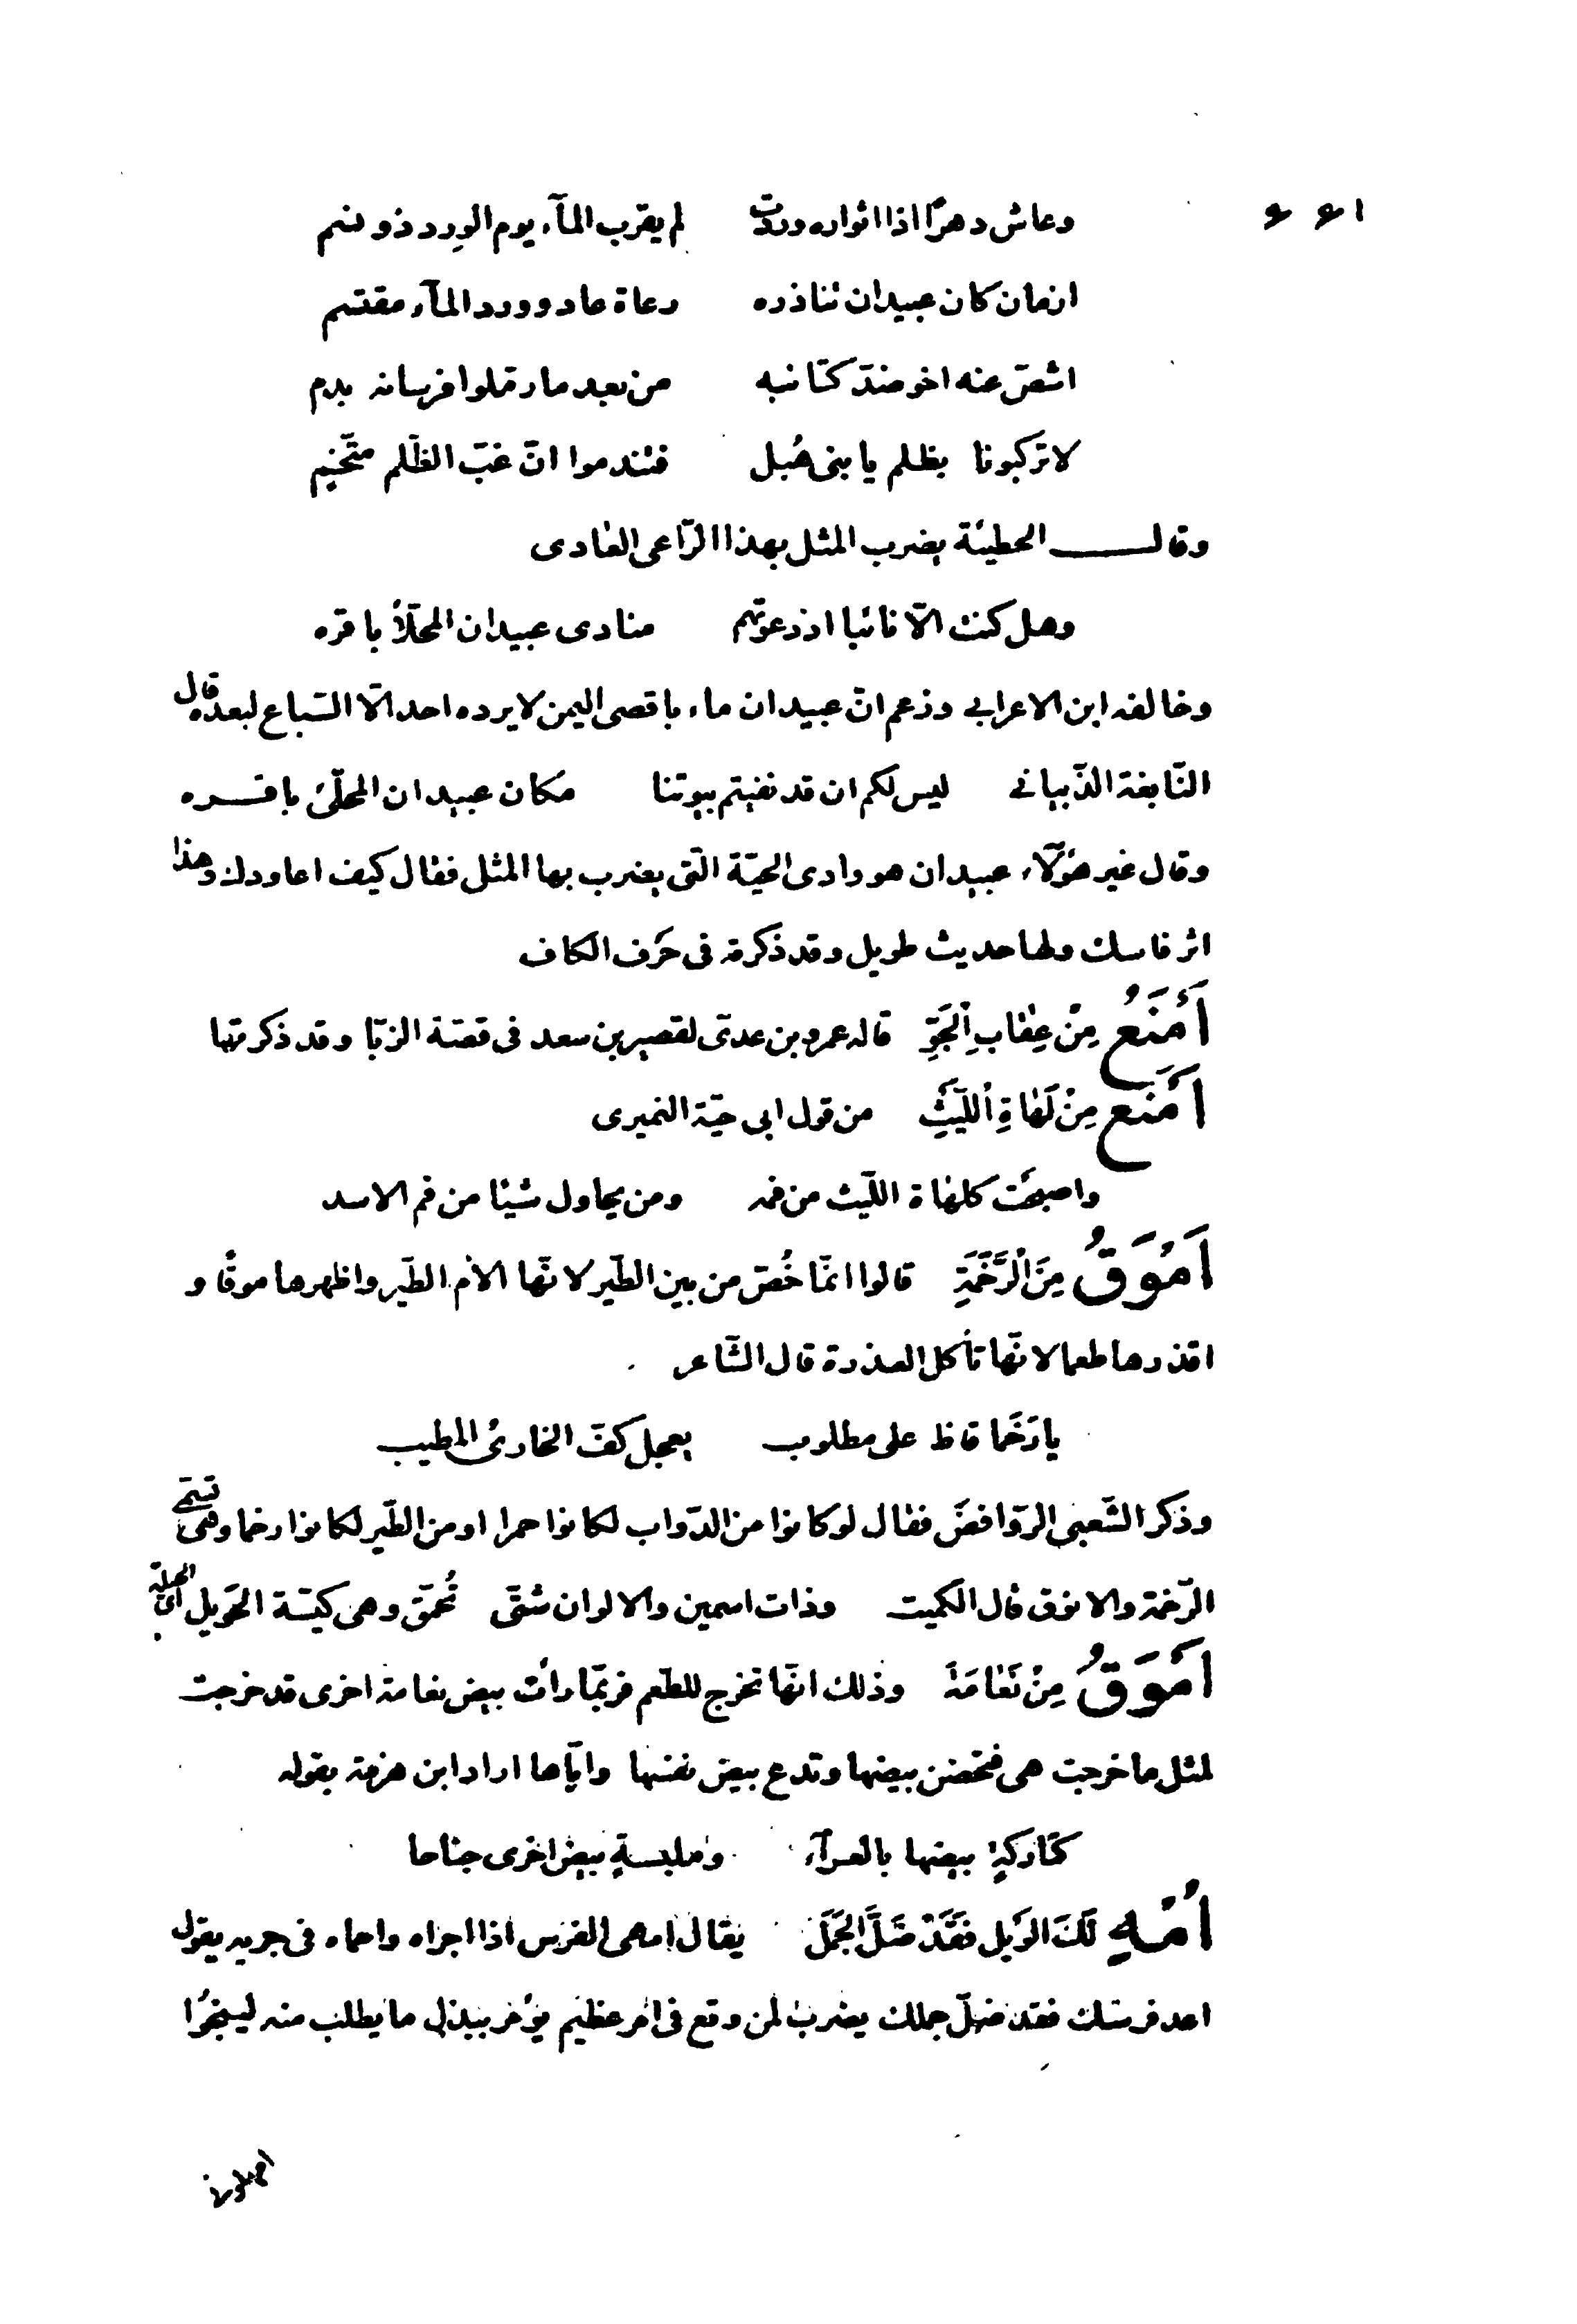 وعاش دهرًا اذا اثواره وردت لم يقرب المآء يوم الورد ذو نسم
ازمان كان عبيدان تناذره رعاة عاد وورد المآء مقتسم
اشصّ عنه اخو ضدّ كتائبه من بعد ما رملوا فرسانه بدم
لا تركبونا بظلم يا بنى هُبل فتندموا انّ غبّ الظّلم متّخم
وقال الحطيئة يضرب المثل بهذا الرّاعى العادى
وهل كنت الّا نائيا اذ دعوتهم منادى عبيدان المحلّأ باقره
وخالفه ابن الاعرابي وزعم انّ عبيدان ماء باقصى اليمن لا يرده احد الّا السّباع لبعده قال
النّابغة الذّبياني ليس لكم ان قد نفيتم بيوتنا مكان عبيدان المحلّئ باقره
وقال غير هؤلآء عبيدان هو وادى الحيّة الّتى يضرب بها المثل فقال كيف اعاودك وهذا
اثر فاسك ولها حديث طويل وقد ذكرته فى حَرف الكاف
أَمْنَعُ مِنْ عِقٰابِ اْلجَوِّ قاله عمرو بن عدىّ لقصير بن سعد فى قصّة الزبّا وقد ذكرتها
اَمْنَع مِنْ لَهٰاةِ اْللَّيْثِ من قول ابى حيّة النميرى
واصبحَت كلهٰاة اللّيث من فمه ومن يحاول شيئا من فم الاسد
اَمْوَقُ مِنَ اْلرَّخَمَةِ قالوا انمّا خُصّ من بين الطّير لانّها الأم الطّير واظهرها موقًا و
اقذرها طعما لانّها تأكل العذرة قال الشّاعر
يا رَخَما قاظ على مطلوب يعجل كفّ الخارئ المطيب
وذكر الشّعبى الرّوافضَ فقال لو كانوا من الدّواب لكانوا حمرا او من الطّير لكانوا رخما وهى تسمّى
الرّخمة والانوق قال الكميت وذات اسمين والالوان شتّى تُحمّق وهى كيّسة الحَويل اى الحيلة
اَمْوَقُ مِنْ نَعٰامَةً وذلك انّها تخرج للطّعم فربّما رأت بيض نعامة اخرى قد خرجت
لمثل ما خرجت هى فتحضن بيضها وتدع بيض نفسها وايّاها اراد ابن هرمة بقوله
كتاركةٍ بيضها بالعرآء وملبسةٍ بيض اخرى جناحا
اَمْهِ لَكَ الوَيْل فَقَدْ ضَلَّ الجَمَل يقال امهى الفرس اذا اجراه واحماه فى جريه يقول
اعد فرسك فقد ضلّ جملك يضرب لمن وقع فى امر عظيم يؤمر ببذل ما يطلب منه لينجو